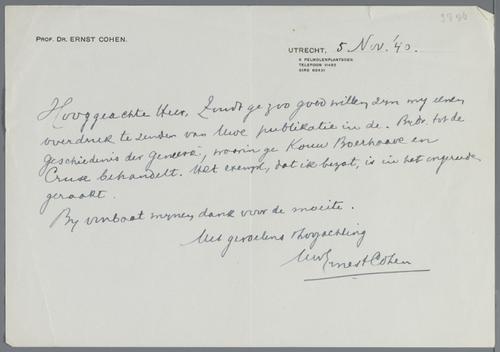 3896
PROF. DR. ERNST COHEN.
UTRECHT, 5 Nov. '40.
TELEFOON 11482
Hooggeachte Heer, Zoudt ge zoo goed willen zijn my eenen
overdruk te zenden van Uwe publikatie in de Bijdr. tot de
geschiedenis der geneesk., waarin ge Kouw Boerhaave en
Cruse behandelt. Het exempl., dat ik bezat, is in het ongereede
geraakt.
By voorbaat mynen dank voor de moeite.
Met gevoelens v. hoogachting
Uw Ernst Cohen